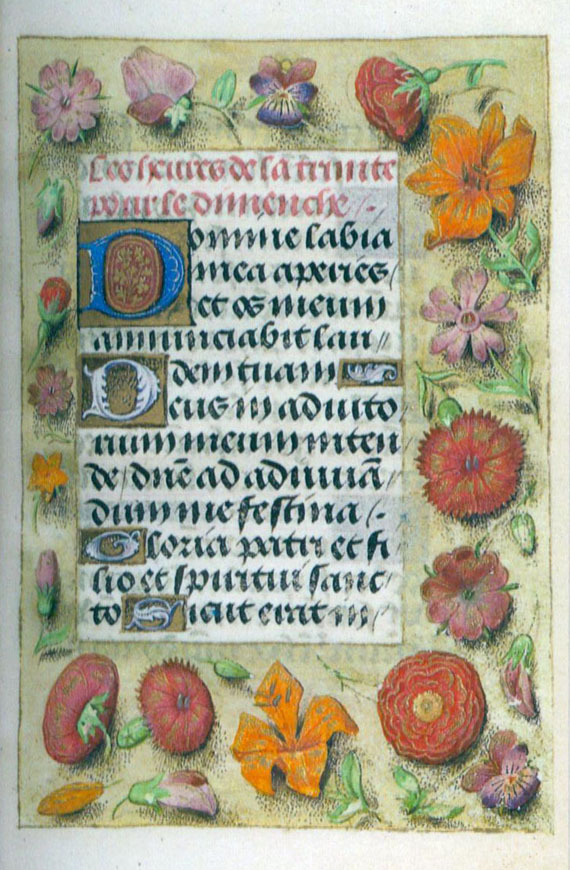 Les heures de la trinite
pour le dimenche /.
Domine labia
mea aperies /
et os meum
annunciabit lau //
dem tuam
Deus in adiuto
rium meum inten
de / dn̄e ad adiuuā
dum me festina /.
Gloria patri et fi
lio et spiritui sanc
to Sicut erat in //